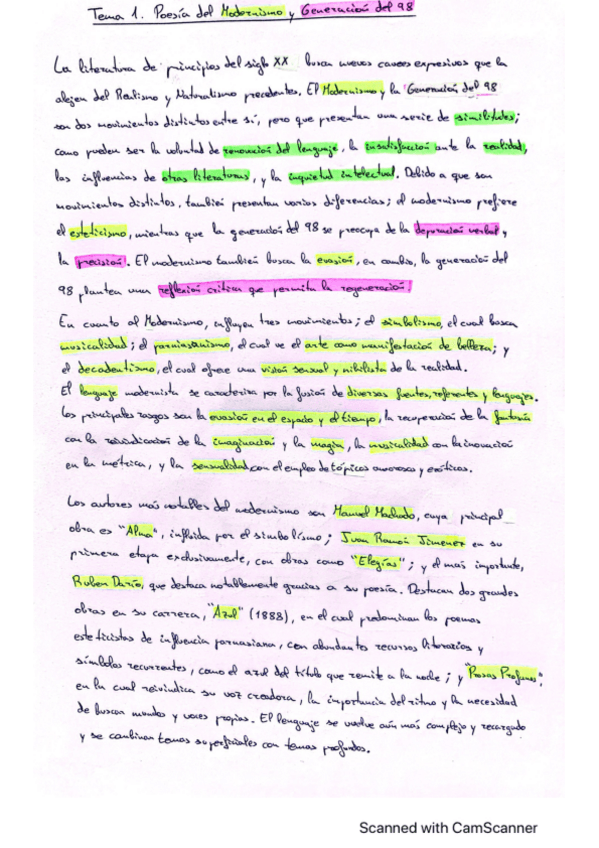 Tema 1. Poesía del Modernismo y Generación del 98
La literatura de principios del siglo XX busca nuevos cauces expresivos que la
alejen del Realismo y Naturalismo precedentes. El Modernismo y la Generación del 98
son dos movimientos distintos entre sí, pero que presentan una serie de similitudes;
como pueden ser la voluntad de renovación del lenguaje, la insatisfacción ante la realidad,
las influencias de otras literaturas, y la inquietud intelectual. Debido a que son
movimientos distintos, también presentan varias diferencias; el modernismo prefiere
el esteticismo, mientras que la generación del 98 se preocupa de la depuración verbal y
la precisión. El modernismo también busca la evasión, en cambio, la generación del
98 plantea una reflexión crítica que permita la regeneración.
En cuanto al Modernismo, influyen tres movimientos; el simbolismo, el cual busca
musicalidad; el parnasianismo, el cual ve el arte como manifestación de belleza; y
el decadentismo, el cual ofrece una visión sensual y nihilista de la realidad.
El lenguaje modernista se caracteriza por la fusión de diversas fuentes, referentes y lenguajes.
Los principales rasgos son la evasión en el espacio y el tiempo, la recuperación de la fantasía
con la reivindicación de la imaginación y la magia, la musicalidad con la innovación
en la métrica, y la sensualidad con el empleo de tópicos amorosos y exóticos.
Los autores más notables del modernismo son Manuel Machado, cuya principal
obra es "Alma", influida por el simbolismo; Juan Ramón Jimenez en su
primera etapa exclusivamente, con obras como "Elegías"; y el más importante,
Ruben Darío, que destaca notablemente gracias a su poesía. Destacan dos grandes
obras en su carrera, "Azul" (1888), en el cual predominan los poemas
esteticistas de influencia parnasiana, con abundantes recursos literarios y
símbolos recurrentes, como el azul del título que remite a la noche; y "Prosas Profanas",
en la cual reivindica su voz creadora, la importancia del ritmo y la necesidad
de buscar mundos y voces propias. El lenguaje se vuelve aún más complejo y recargado
y se combinan temas superficiales con temas profundos.
Scanned with CamScanner